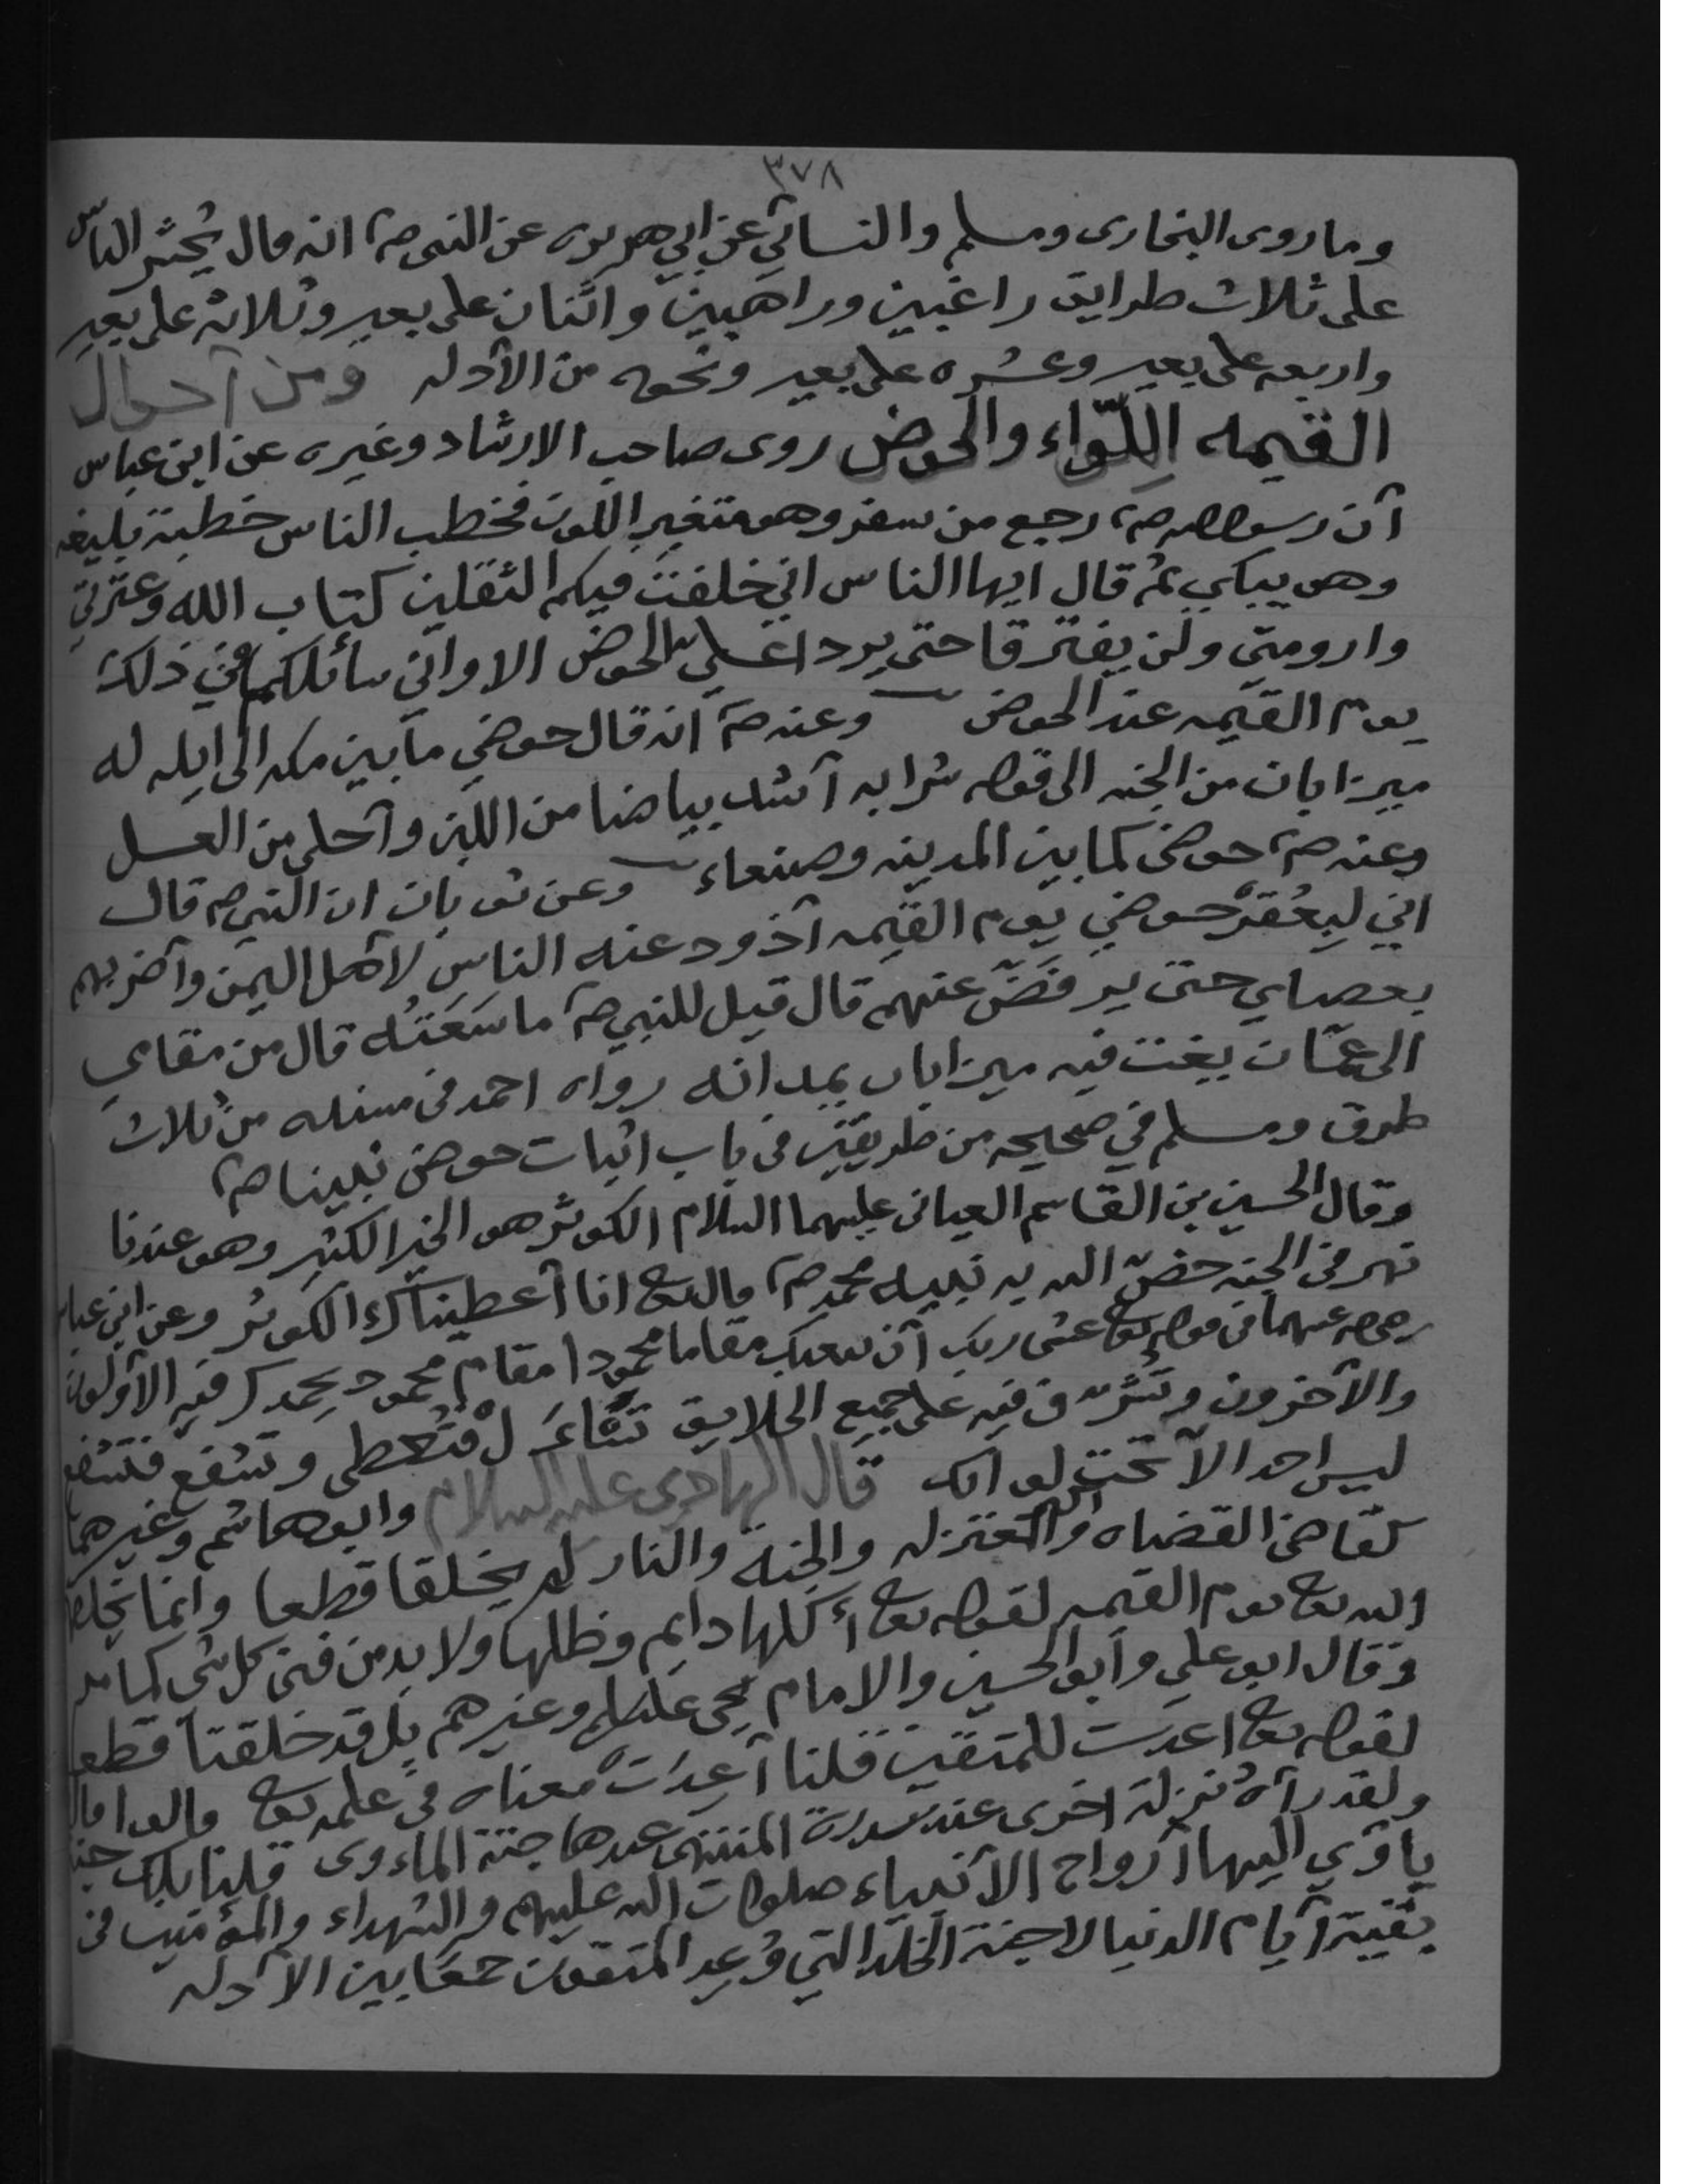 ٣٧٨
وما روى البخارى ومسلم والنسائي عن ابي هريره عن النبي صم انه قال يُحشر الناس
على ثلاث طرايق راغبين وراهبين واثنان على بعير وثلاثه على بعير
واربعه على بعير وعشره على بعير ونحوه من الأدله ومن أحوال
القيمه اللّواء والحوض روى صاحب الارشاد وغيره عن ابن عباس
أن رسول الله صم رجع من سفر وهو متغير اللون فخطب الناس خطبة بليغه
وهو يبكي ثم قال ايها الناس اني خلفت فيكم الثقلين كتاب الله وعترتي
وارومتي ولن يفترقا حتى يردا علي الحوض الا واني سائلكم عن ذلك
يوم القيمه عند الحوض وعنه صم انه قال حوضي ما بين مكه الى ايله له
ميزابان من الجنه الى قوله شرابه أشد بياضا من اللبن وأحلى من العسل
وعنه صم حوضى كما بين المدينه وصنعاء وعن ثوبان ان النبي صم قال
اني لبِعُقرْ حوضي يوم القيمه أذود عنه الناس لأهل اليمن وأضربهم
بعصاي حتى يرفَضّ عنهم قال قيل للنبي صم ما سَعَتُه قال من مقامي
الى عمّان يغت فيه ميزابان يمدانه رواه احمد فى مسنده من ثلاث
طرق ومسلم في صحيحه من طريقين فى باب اثبات حوض نبينا صم
وقال الحسين بن القاسم العياني عليهما السلام الكوثر هو الخير الكثير وهو عندنا
نهر فى الجنه خصّ الله به نبيه محمد صم قال تع انا أعطيناك الكوثر وعن ابن عباس
رضي الله عنهما فى قوله تع عسى ربك أن يبعثك مقاما محمودا مقام محمود يحمدك فيه الأولون
والآخرون وتُشرّف فيه على جميع الخلايق تسْأَل فتُعطى وتشفع فتشفع
ليس احد الا تحت لوائك قال الهادي عليه السلام وابو هاشم وغيرهما
كقاضى القضاه والمعتزله والجنة والنار لم يخلقا قطعا وانما يخلقهما
الله تع يوم القيمه لقوله تع أكلها دايم وظلها ولا بد من فنى كل شى كما مر
وقال ابو علي وأبو الحسين والامام يحيى عليلم وغيرهم بل قد خلقتا قطعا
لقوله تع اعدت للمتقين قلنا أعِدت معناه فى علمه تع قالوا قال
ولقد رآهُ نزلة اخرى عند سدرة المنتهى عندها جنة المأوى قلنا تلك جنة
يأوي اليها أرواح الأنبياء صلوات الله عليهم والشهداء والمؤمنين فى
بقية أيام الدنيا لا جنة الخلد التي وُعِد المتقون جمعا بين الأدله